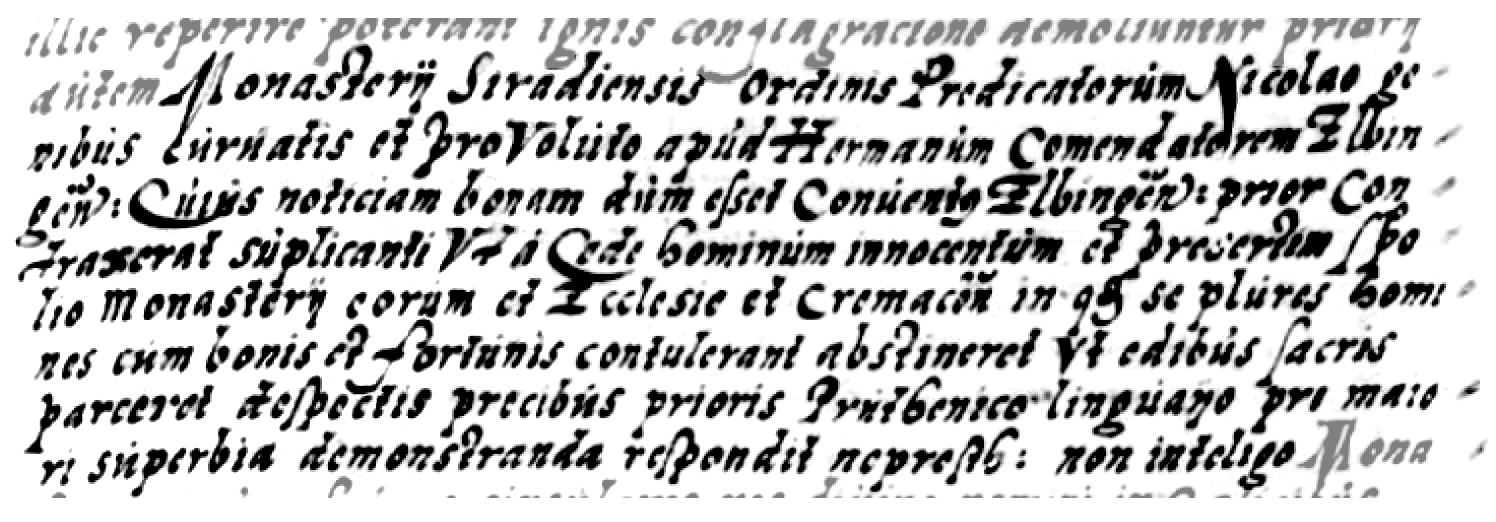 illic reperire poterant ignis conflagracione demoliuntur priorẏ
autem Monasterÿ Siradiensis Ordinis Predicatorúm Nicolao ge
nibús cúruatis et proVolúto apúd Hermanúm Comendatorem Elbin
gen̄: Cúiús noticiam bonam dúm esset Conúentq Elbingen̄: prior Con
traxerat súplicanti Vt á Cede hominúm innocentúm et presertim spo
lio Monasterÿ eorum et Ecclesie et Cremacōn in se plúres homi
nes cúm bonis et fortúnis contulerant abstineret Vt edibús sacris
parceret despectis precibús prioris Pruthenico pro maio
ri súperbia demonstranda respondit neprest: non inteligo Mona